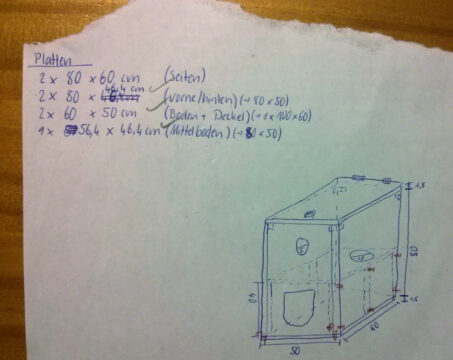 Platten
2x 80 x 60 cm (Seiten)
2x 80 x 46,4 cm (vorne/hinten) (→ 80 x 50)
2x 60 x 50 cm (Boden + Deckel) (→ 1x 100 x 60)
1x 56,4 x 46,4 cm (Mittelboden) (→ x 50)
1,8
80
40
1,8
50
60